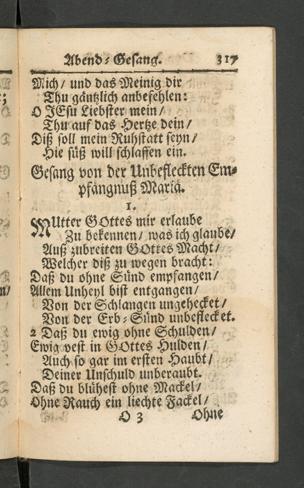 Abend-Gesang. 317
Mich/ und das Meinig dir
Thu gäntzlich anbefehlen:
O JEsu Liebster mein/
Thu auf das Hertze dein/
Diß soll mein Ruhstatt seyn/
Hie süß will schlaffen ein.
Gesang von der Unbefleckten Em-
pfängnuß Mariä.
1.
MUtter GOttes mir erlaube
Zu bekennen/ was ich glaube/
Auß zubreiten GOttes Macht/
Welcher diß zu wegen bracht:
Daß du ohne Sünd empfangen/
Allem Unheyl bist entgangen/
Von der Schlangen ungehecket/
Von der Erb-Sünd unbeflecket.
2 Daß du ewig ohne Schulden/
Ewig vest in GOttes Hulden/
Auch so gar im ersten Haubt/
Deiner Unschuld unberaubt.
Daß du blühest ohne Mackel/
Ohne Rauch ein liechte Fackel/
O 3 Ohne